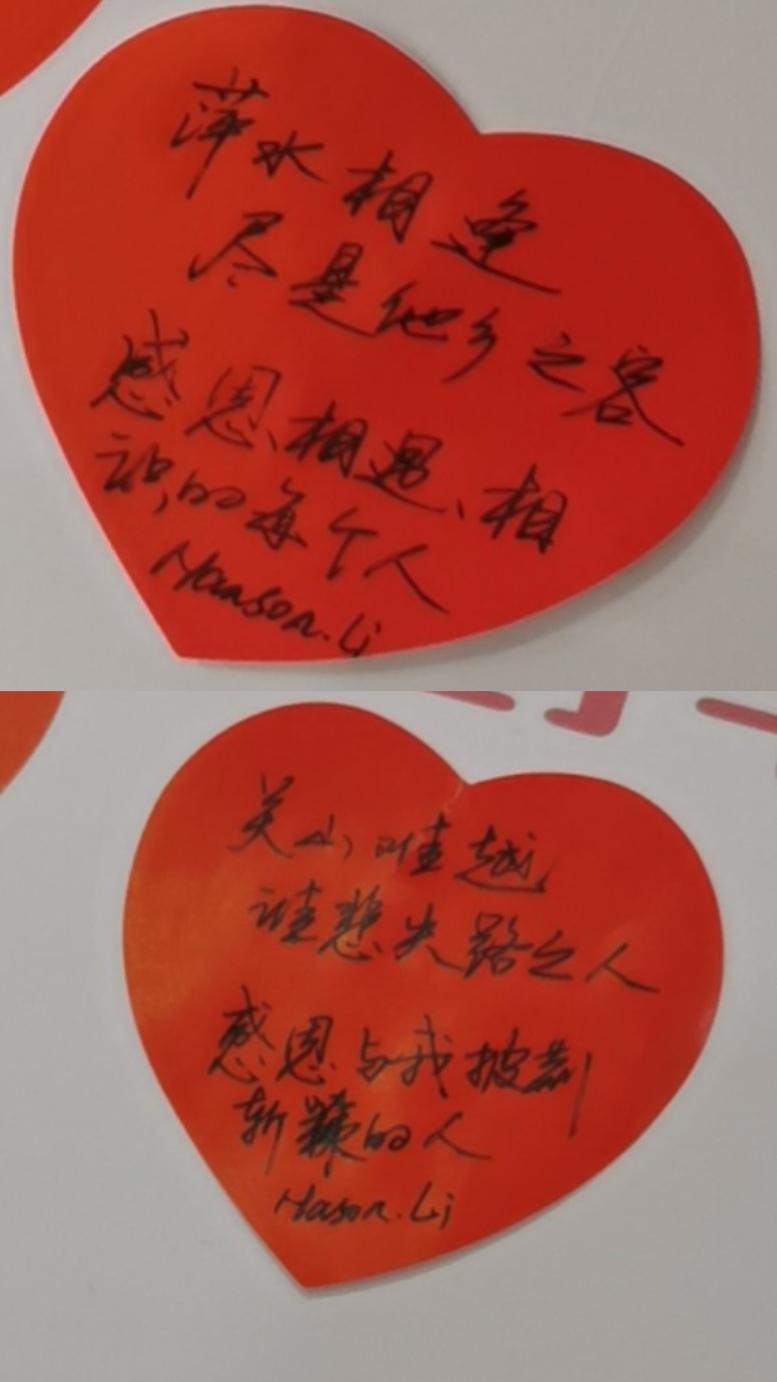 萍水相逢
尽是他乡之客
感恩、相遇、相
识的每个人
Hanson.Li
关山难越
谁悲失路之人
感恩与我披荆
斩棘的人
Hason.Li